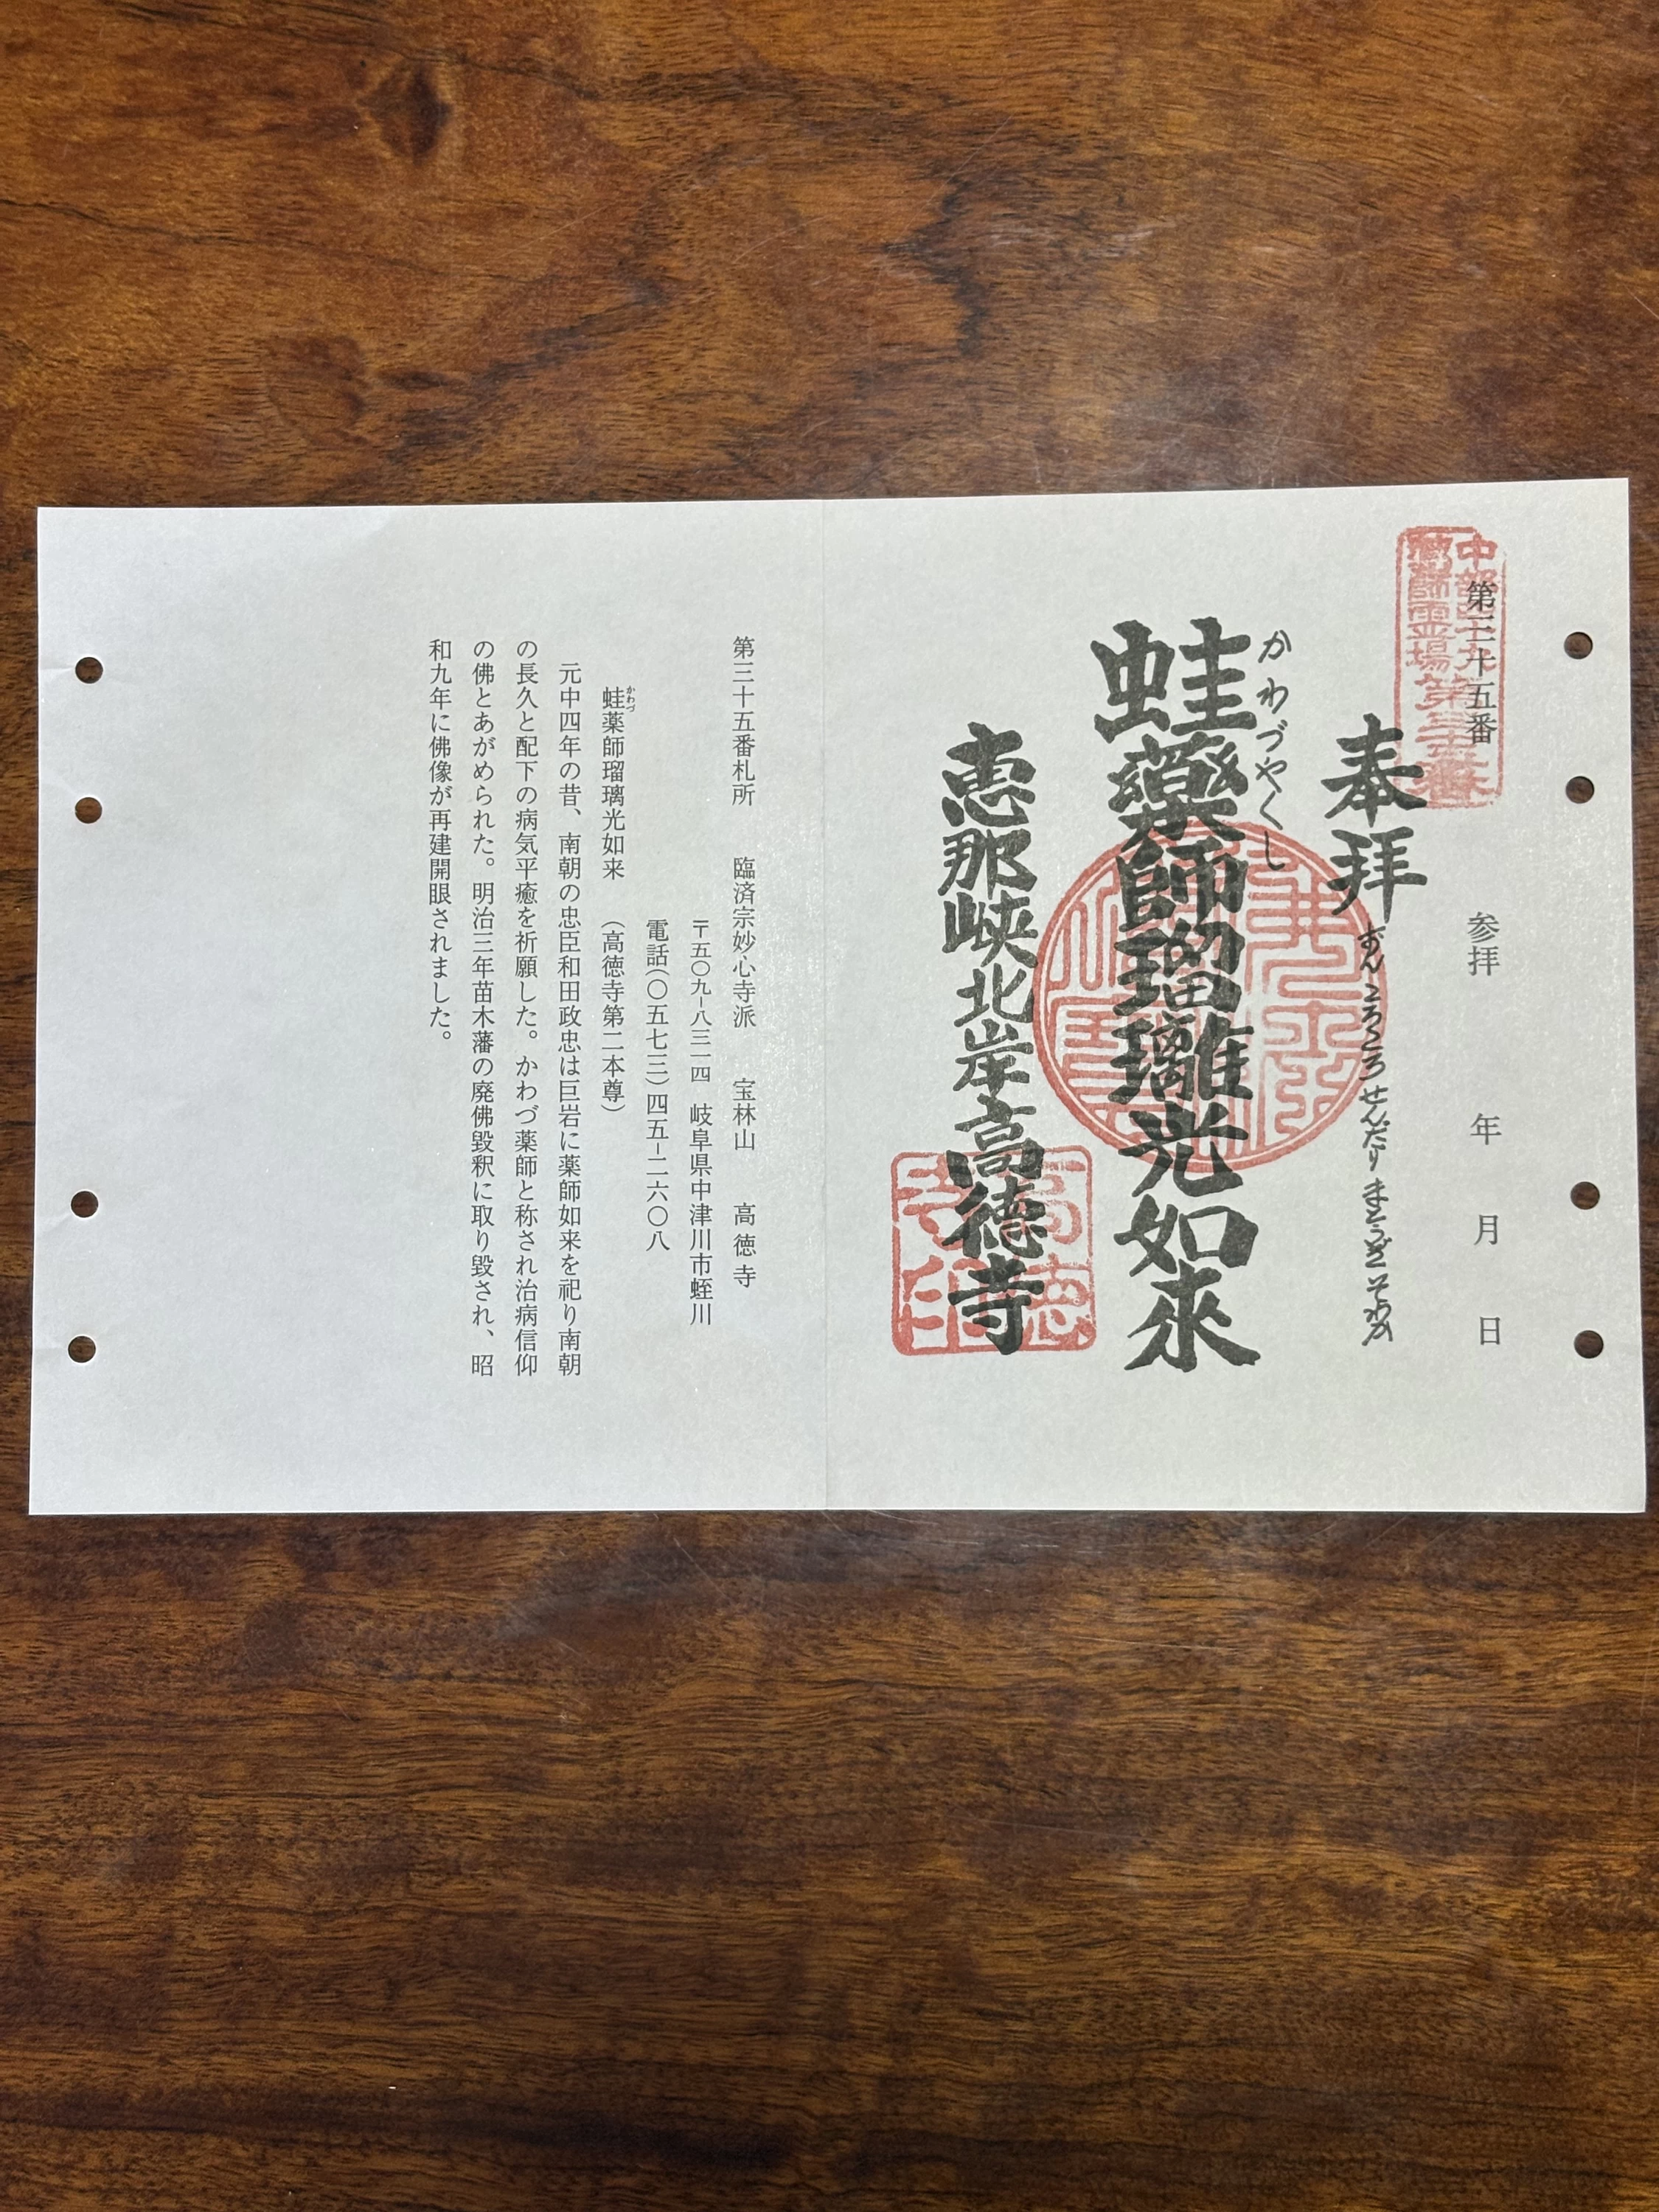 中部四十九
薬師霊場第三十五番
第三十五番
参拝　年　月　日
奉拝
おんころころせんだりまとうぎそわか
かわづやくし
蛙薬師瑠璃光如來
恵那峡北岸高徳寺
第三十五番札所　臨済宗妙心寺派　宝林山　高徳寺
〒五〇九-八三一四　岐阜県中津川市蛭川
電話(〇五七三)四五-二六〇八
かわづ
蛙薬師瑠璃光如来　(高徳寺第二本尊)
元中四年の昔、南朝の忠臣和田政忠は巨岩に薬師如来を祀り南朝
の長久と配下の病気平癒を祈願した。かわづ薬師と称され治病信仰
の佛とあがめられた。明治三年苗木藩の廃佛毀釈に取り毀され、昭
和九年に佛像が再建開眼されました。